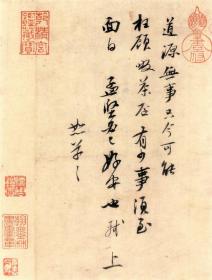 道源無事只今可能
枉顧啜茶否有少事須至
面白 孟堅必已好安也 軾 上
恕草草